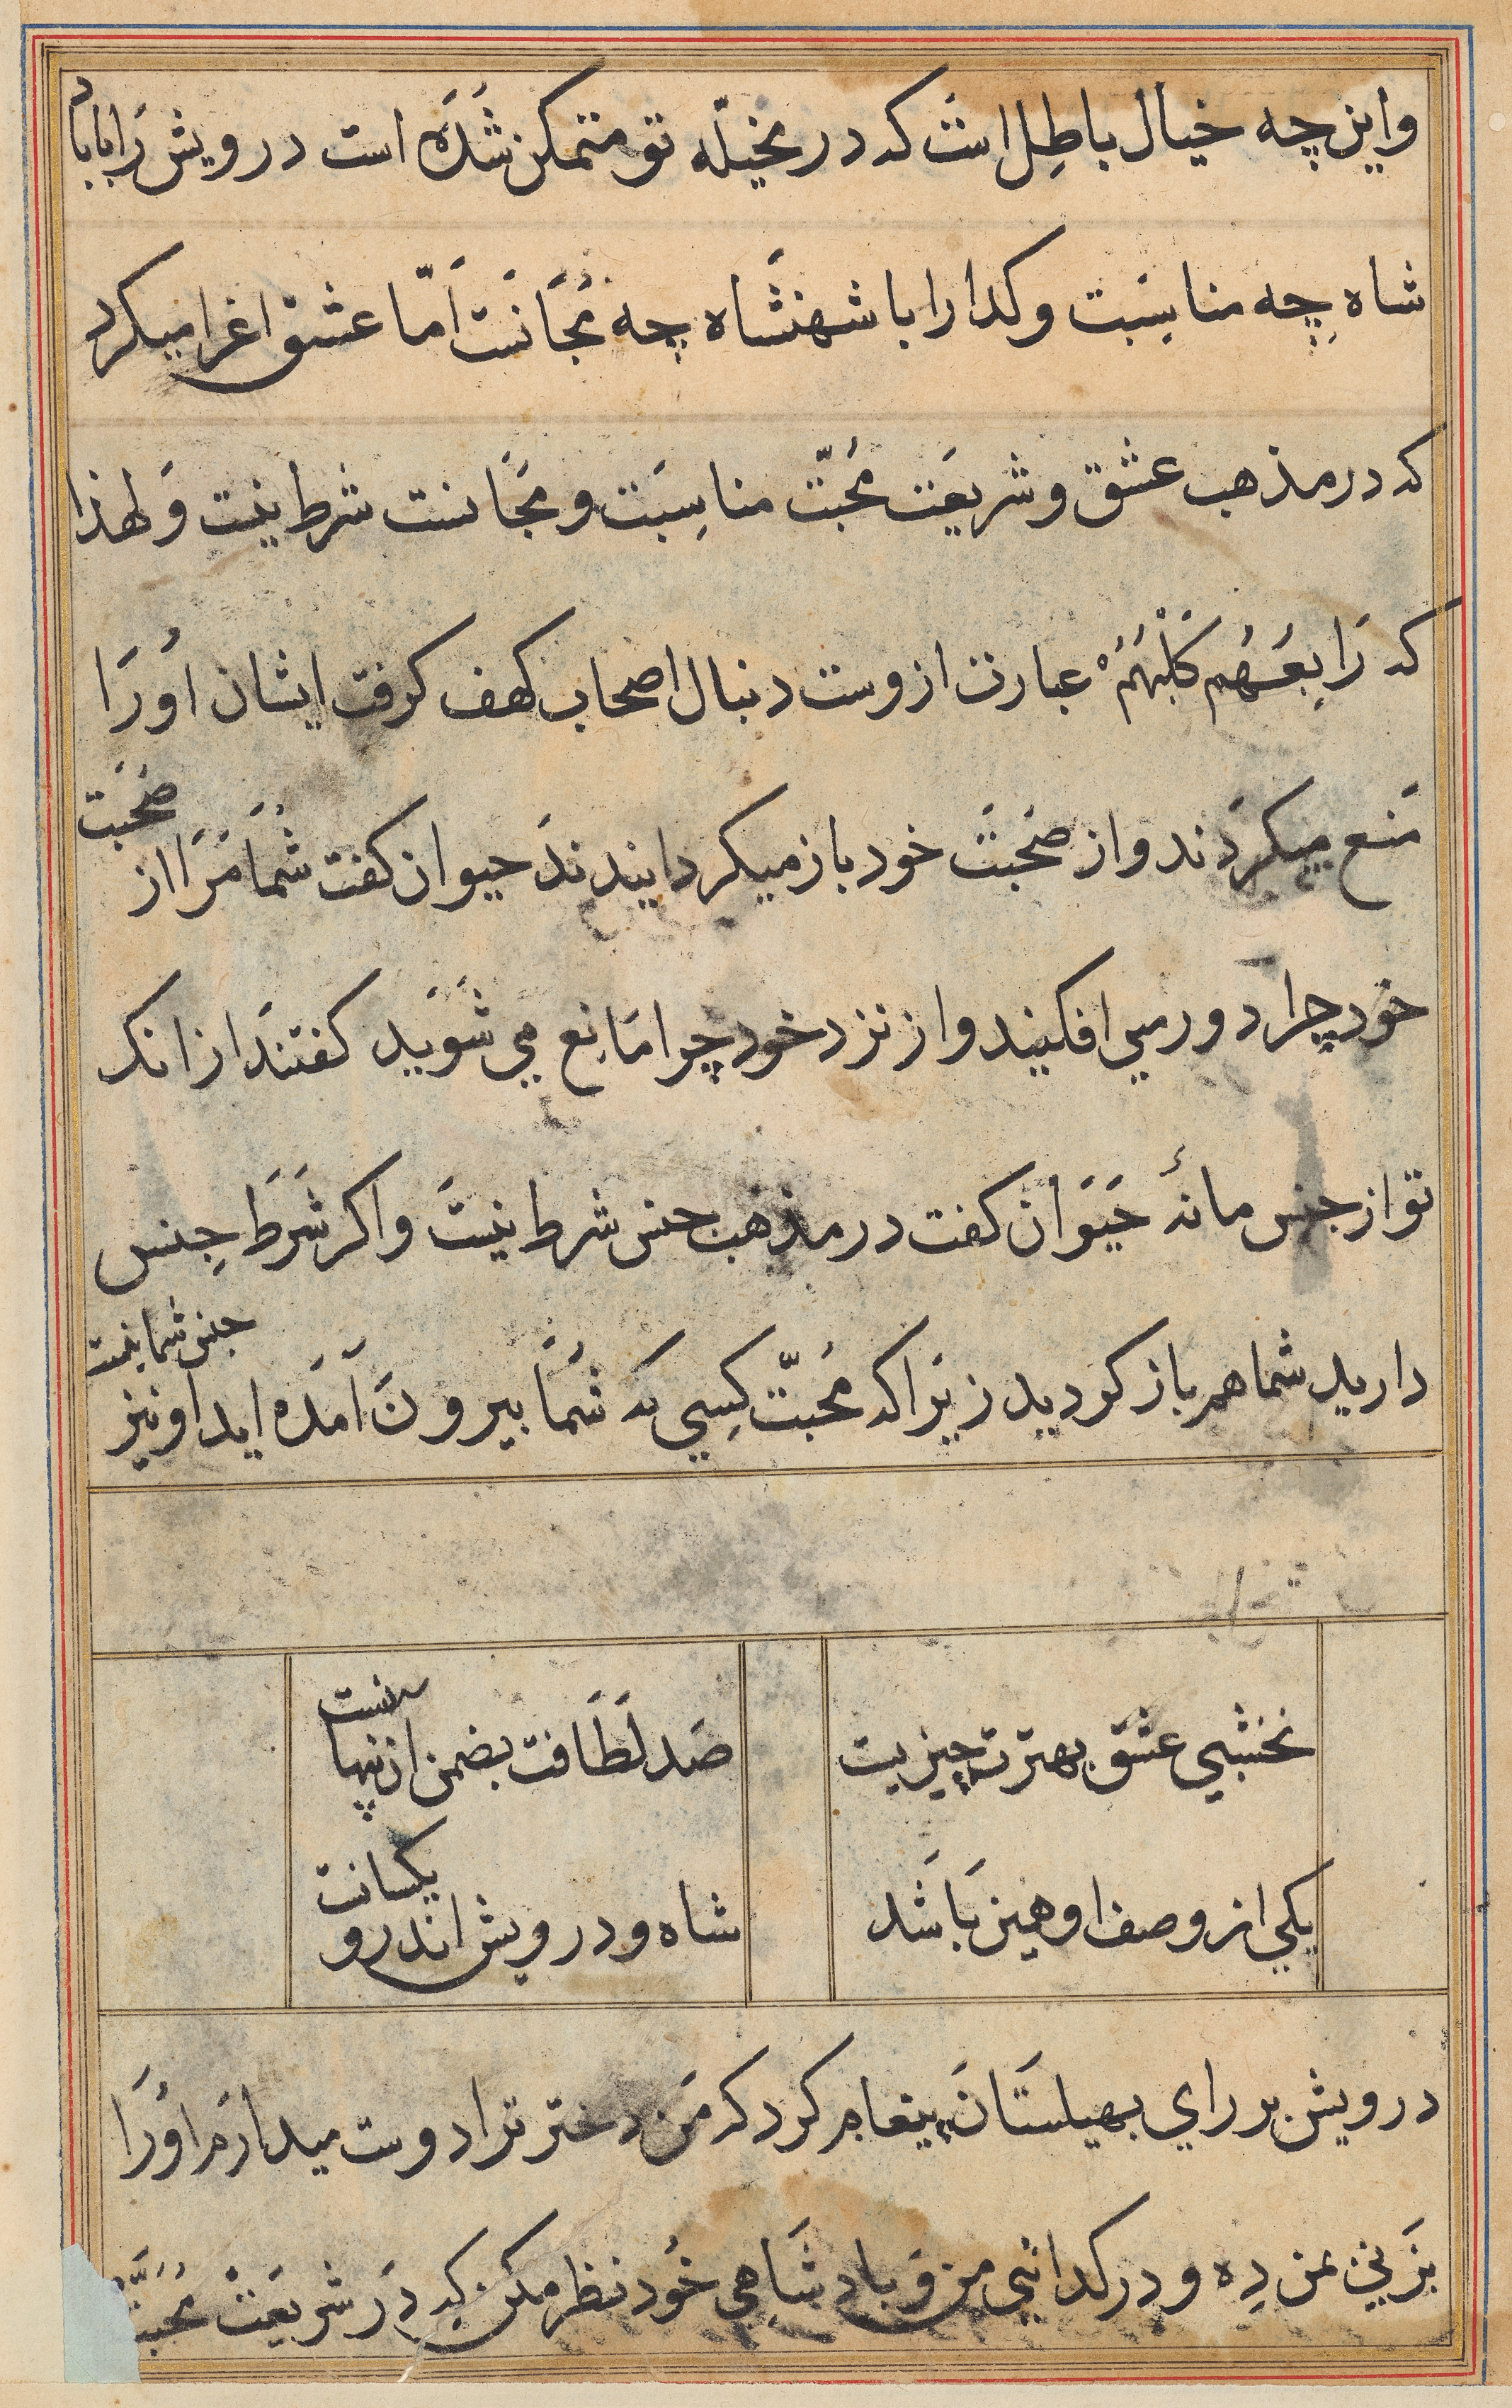 واین چه خیال باطل است که در مخیّله تو متمکن شده است درویش را بابا د
شاه چه مناسبت و کدا را با شهنشاه چه مجانست امّا عشق اغرا میکرد
که در مذهب عشق و شریعت محبّت مناسبت و مجانست شرط نیست و لهذا
که رَابِعُهُم کَلْبُهُمْ عبارت ازوست دنبال اصحاب کهف کرفت ایشان اورا
منع میکردند و از صحبت خود باز میکردانیدند حیوان کفت شما مرا از صحبت
خود چرا دور می افکنید و از نزد خود چرا مانع می شوید کفتند از انکه
تو از جنس مانهٔ حیوان کفت در مذهب جنس شرط نیست و اکر شرط جنس
دارید شما هم باز کردید زیرا که محبّت کسی که شما بیرون آمده اید او نیز جنس شما نیست
نخشبی عشق بهترت چیزیست صد لطافت بضمن ان پنهانست
یکی از وصف او همین باشد شاه و درویش اندرو یکسانست
درویش بر رای بهیلستان پیغام کرد که من دختر ترا دوست میدارم اورا
بزنی بمن ده و در کدائی من و بادشاهی خود نظر مکن که در شریعت محبّت